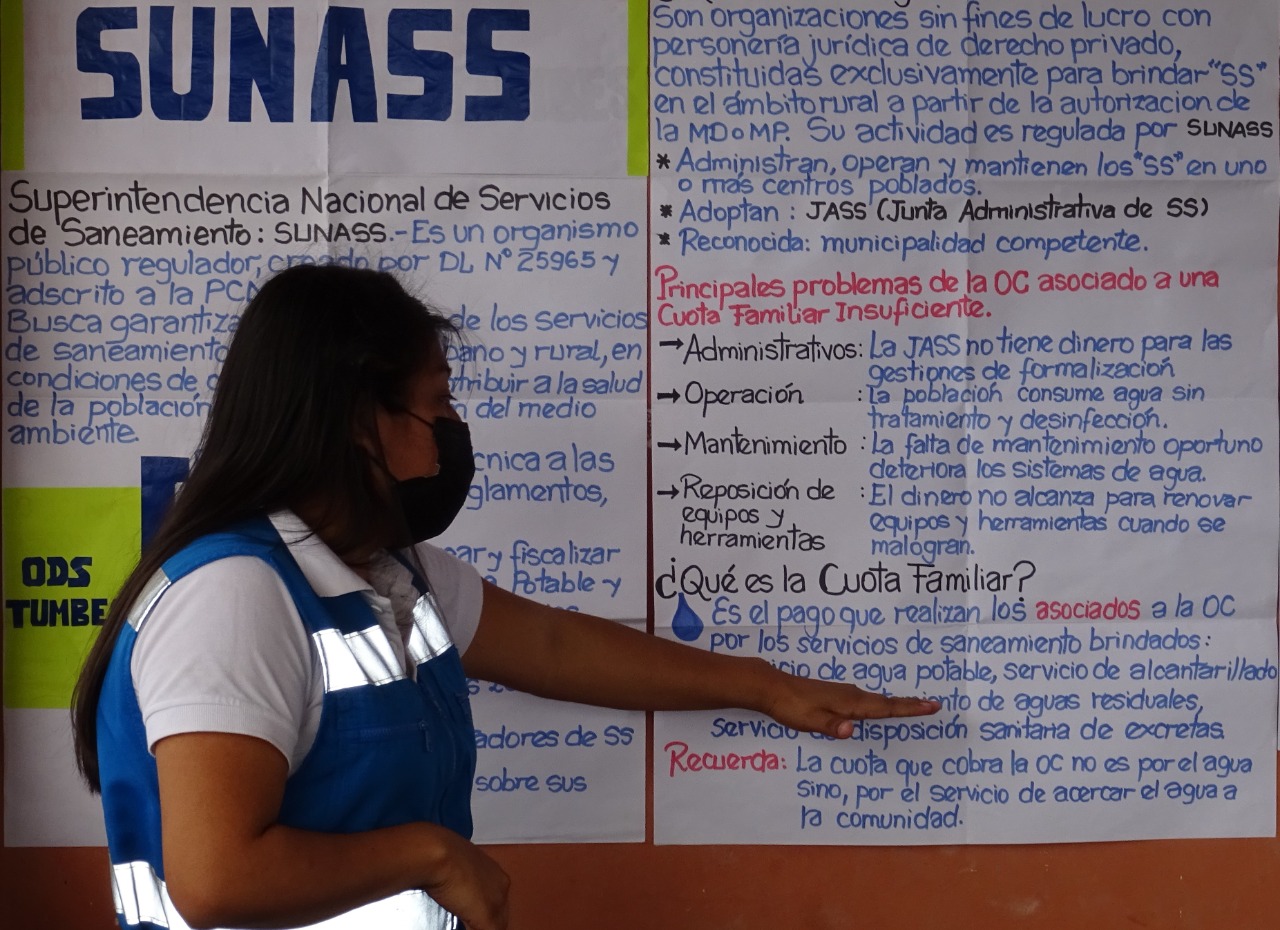 SUNASS
Superintendencia Nacional de Servicios
de Saneamiento: SUNASS.- Es un organismo
público regulador, creado por DL N° 25965 y
adscrito a la PCM
Busca garantiza de los servicios
de saneamiento y rural, en
condiciones de a la salud
de la población del medio
ambiente.
a las
y fiscalizar
Potable y
ODS
TUMBE
de SS
sobre sus
Son organizaciones sin fines de lucro con
personería jurídica de derecho privado,
constituidas exclusivamente para brindar "SS"
en el ámbito rural a partir de la autorizacion de
la MD o MP. Su actividad es regulada por SUNASS
* Administran, operan y mantienen los "SS" en uno
o más centros poblados.
* Adoptan : JASS (Junta Administrativa de SS)
* Reconocida: municipalidad competente.
Principales problemas de la OC asociado a una
Cuota Familiar Insuficiente.
→ Administrativos: La JASS no tiene dinero para las
gestiones de formalización
→ Operación : La población consume agua sin
tratamiento y desinfección.
→ Mantenimiento : La falta de mantenimiento oportuno
deteriora los sistemas de agua.
→ Reposición de : El dinero no alcanza para renovar
equipos y equipos y herramientas cuando se
herramientas malogran.
¿Qué es la Cuota Familiar?
Es el pago que realizan los asociados a la OC
por los servicios de saneamiento brindados:
de agua potable, servicio de alcantarillado
de aguas residuales,
Servicio de disposición sanitaria de excretas.
Recuerda: La cuota que cobra la OC no es por el agua
sino, por el servicio de acercar el agua a
la comunidad.